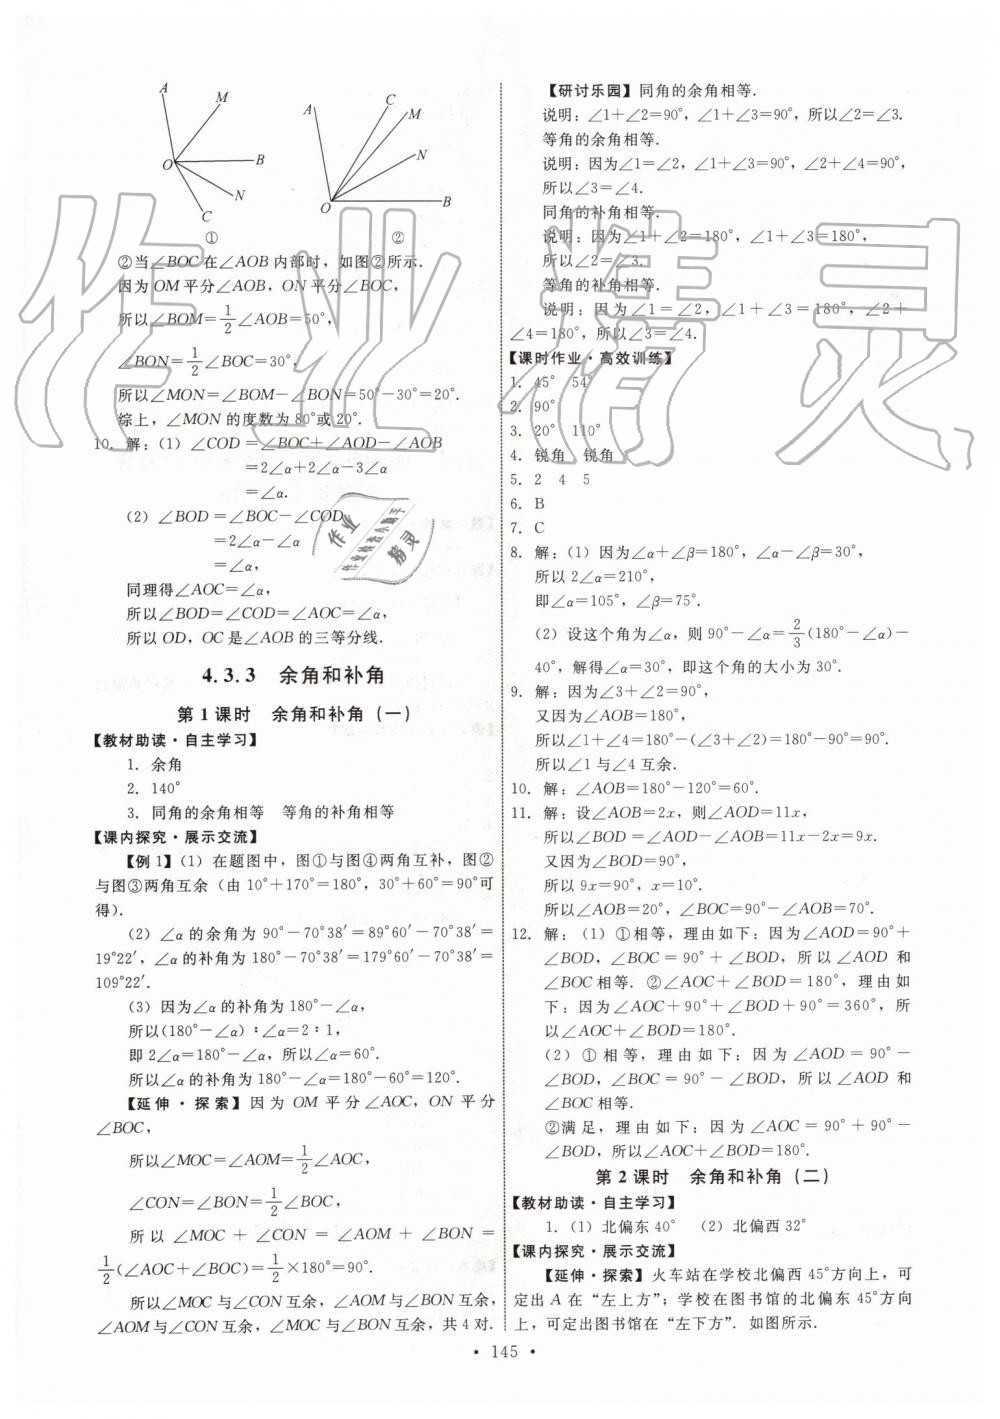 A
M
O
B
N
C
①
A
C
M
N
O
B
②
②当∠BOC在∠AOB内部时，如图②所示.
因为OM平分∠AOB，ON平分∠BOC，
所以∠BOM=1/2∠AOB=50°，
∠BON=1/2∠BOC=30°，
所以∠MON=∠BOM-∠BON=50°-30°=20°.
综上，∠MON的度数为80°或20°.
10. 解：(1) ∠COD=∠BOC+∠AOD-∠AOB
=2∠α+2∠α-3∠α
=∠α.
(2) ∠BOD=∠BOC-∠COD
=2∠α-∠α
=∠α，
同理得∠AOC=∠α，
所以∠BOD=∠COD=∠AOC=∠α，
所以OD，OC是∠AOB的三等分线.
4.3.3 余角和补角
第1课时 余角和补角(一)
【教材助读·自主学习】
1. 余角
2. 140°
3. 同角的余角相等 等角的补角相等
【课内探究·展示交流】
【例1】(1) 在题图中，图①与图④两角互补，图②
与图③两角互余（由10°+170°=180°，30°+60°=90°可
得).
(2) ∠α的余角为90°-70°38′=89°60′-70°38′=
19°22′，∠α的补角为180°-70°38′=179°60′-70°38′=
109°22′.
(3) 因为∠α的补角为180°-∠α，
所以(180°-∠α)∶∠α=2∶1，
即2∠α=180°-∠α，所以∠α=60°.
所以∠α的补角为180°-∠α=180°-60°=120°.
【延伸·探索】因为OM平分∠AOC，ON平分
∠BOC，
所以∠MOC=∠AOM=1/2∠AOC，
∠CON=∠BON=1/2∠BOC，
所以∠MOC+∠CON=∠AOM+∠BON=
1/2(∠AOC+∠BOC)=1/2×180°=90°.
所以∠MOC与∠CON互余，∠AOM与∠BON互余，
∠AOM与∠CON互余，∠MOC与∠BON互余，共4对.
【研讨乐园】同角的余角相等.
说明：∠1+∠2=90°，∠1+∠3=90°，所以∠2=∠3.
等角的余角相等.
说明：因为∠1=∠2，∠1+∠3=90°，∠2+∠4=90°，
所以∠3=∠4.
同角的补角相等.
说明：因为∠1+∠2=180°，∠1+∠3=180°，
所以∠2=∠3.
等角的补角相等.
说明：因为∠1=∠2，∠1+∠3=180°，∠2+
∠4=180°，所以∠3=∠4.
【课时作业·高效训练】
1. 45° 54°
2. 90°
3. 20° 110°
4. 锐角 锐角
5. 2 4 5
6. B
7. C
8. 解：(1) 因为∠α+∠β=180°，∠α-∠β=30°，
所以2∠α=210°，
即∠α=105°，∠β=75°.
(2) 设这个角为∠α，则90°-∠α=2/3(180°-∠α)-
40°，解得∠α=30°，即这个角的大小为30°.
9. 解：因为∠3+∠2=90°，
又因为∠AOB=180°，
所以∠1+∠4=180°-(∠3+∠2)=180°-90°=90°.
所以∠1与∠4互余.
10. 解：∠AOB=180°-120°=60°.
11. 解：设∠AOB=2x，则∠AOD=11x，
所以∠BOD=∠AOD-∠AOB=11x-2x=9x.
又因为∠BOD=90°，
所以9x=90°，x=10°.
所以∠AOB=20°，∠BOC=90°-∠AOB=70°.
12. 解：(1) ①相等，理由如下：因为∠AOD=90°+
∠BOD，∠BOC=90°+∠BOD，所以∠AOD和
∠BOC相等. ②∠AOC+∠BOD=180°，理由如
下：因为∠AOC+90°+∠BOD+90°=360°，所
以∠AOC+∠BOD=180°.
(2) ①相等，理由如下：因为∠AOD=90°-
∠BOD，∠BOC=90°-∠BOD，所以∠AOD和
∠BOC相等.
②满足，理由如下：因为∠AOC=90°+90°-
∠BOD，所以∠AOC+∠BOD=180°.
第2课时 余角和补角(二)
【教材助读·自主学习】
1. (1) 北偏东40° (2) 北偏西32°
【课内探究·展示交流】
【延伸·探索】火车站在学校北偏西45°方向上，可
定出A在“左上方”；学校在图书馆的北偏东45°方向
上，可定出图书馆在“左下方”. 如图所示.
• 145 •
作业精灵